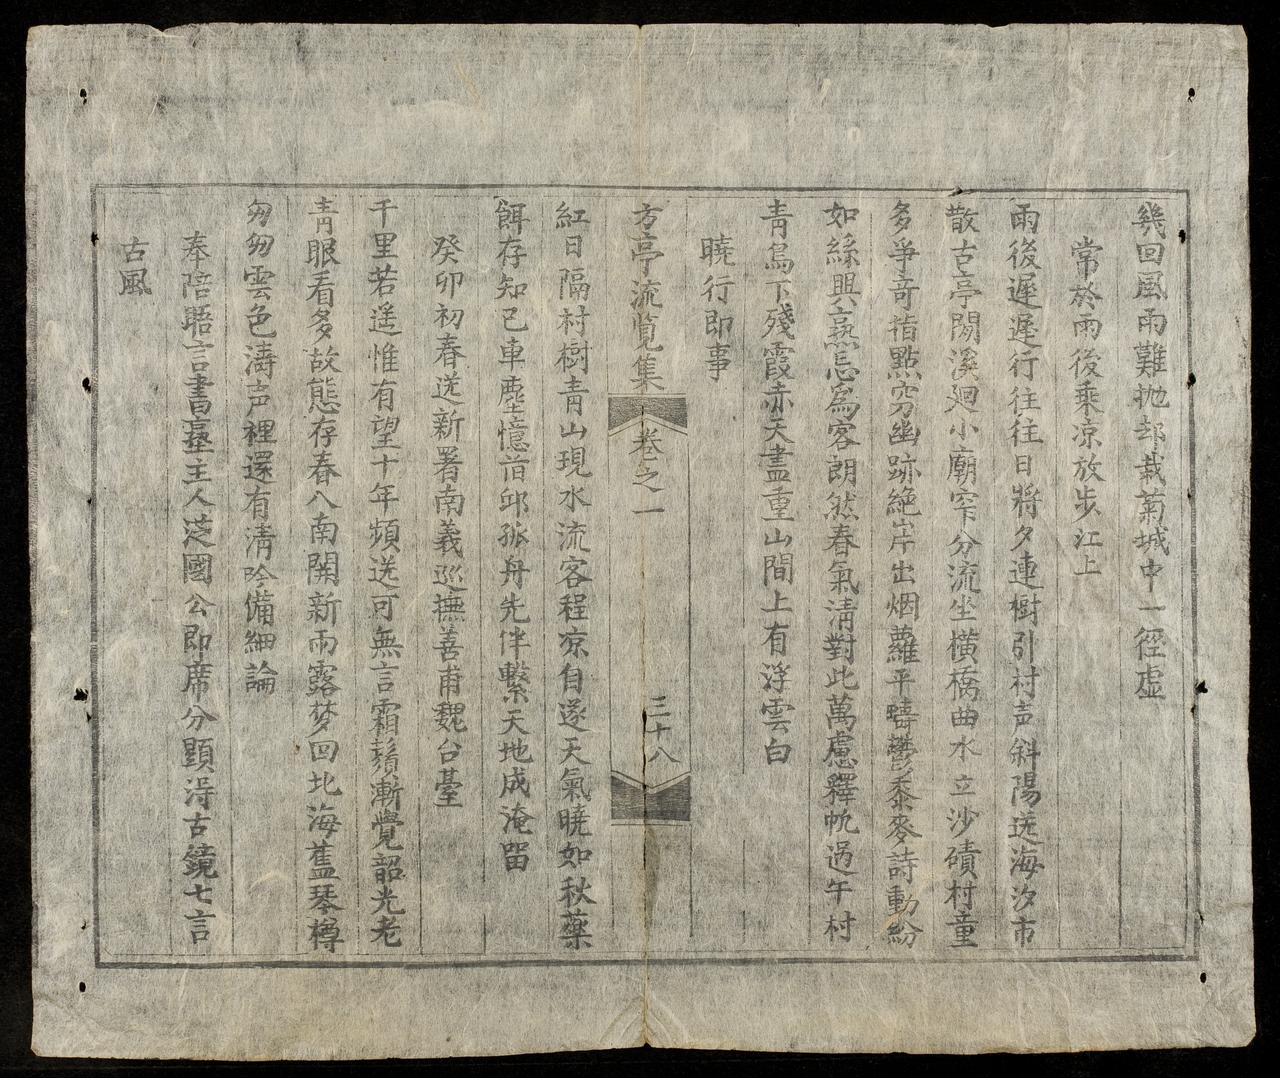 幾回風雨難抛却栽菊城中一徑虛
常於雨後乘凉放步江上
雨後遲遲行往往日將夕連樹引村声斜陽送海汐市
散古亭閒溪廻小廟窄分流坐橫橋曲水立沙磧村童
多爭奇指點窮幽跡絶岸出烟蘿平疇鬱黍麥詩動紛
如絲興熱忘爲客朗然春氣淸對此萬慮釋帆過午村
青鳥下殘霞赤天盡重山間上有浮雲白
曉行即事
方亭流覧集 卷之一 三十八
紅日隔村樹青山現水流客程凉自遂天氣曉如秋藥
餌存知己車塵憶首邱孤舟先伴繫天地成淹留
癸卯初春送新署南義巡撫善甫魏台臺
千里若遥惟有望十年頻送可無言霜鬚漸覺韶光老
青眼看多故態存春入南關新雨露梦回北海舊琴樽
匆匆雲色濤声裡還有淸吟備細論
奉陪晤言書墓主人莚國公即席分題淂古鏡七言
古風